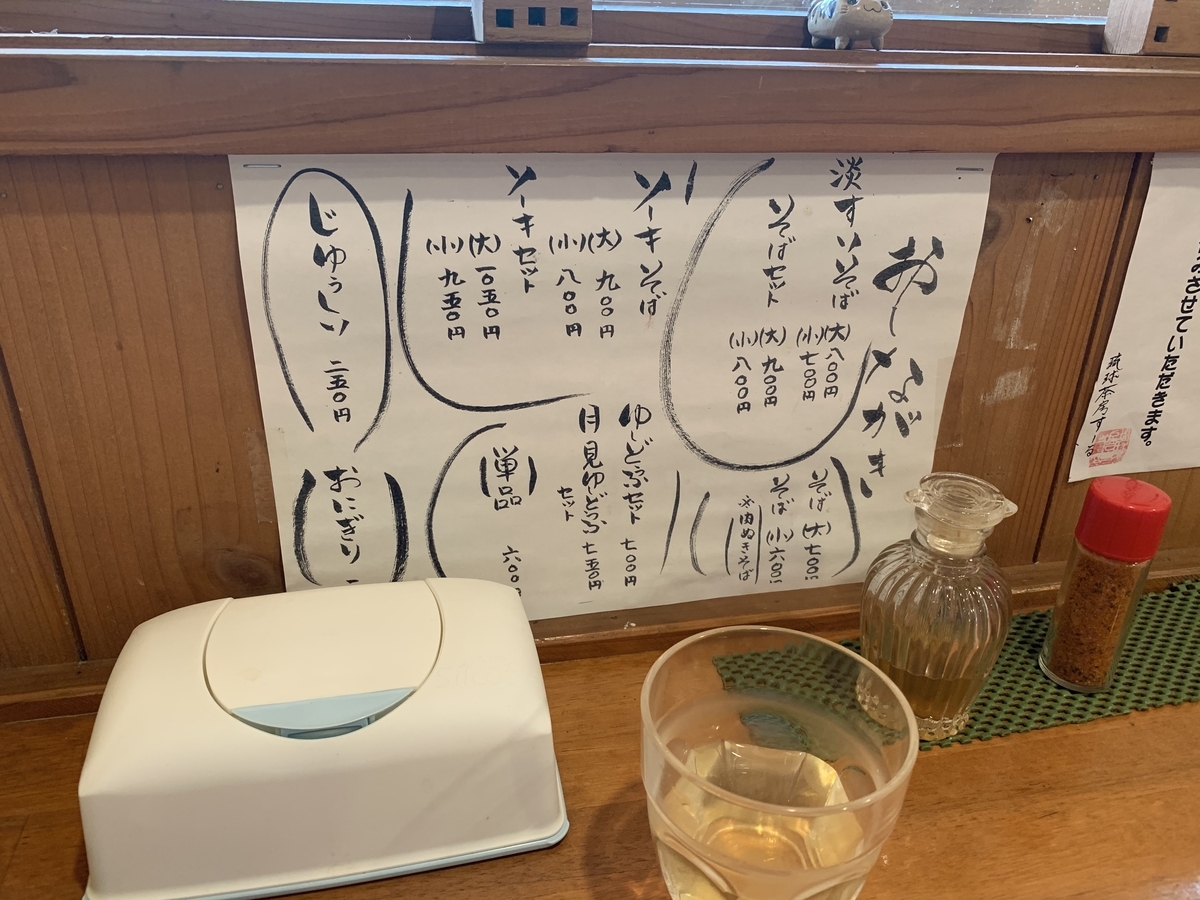 おしながき
淡すいそば
(大) 八〇〇円
(小) 七〇〇円
そばセット
(大) 九〇〇円
(小) 八〇〇円
ソーキそば
(大) 九〇〇円
(小) 八〇〇円
ソーキセット
(大) 一〇五〇円
(小) 九五〇円
じゅうしい 二五〇円
そば (大) 七〇〇円
そば (小) 六〇〇円
※肉ぬきそば
ゆしどふセット 七〇〇円
月見ゆしどふ
セット 七五〇円
(単品) 六〇〇
おにぎり
させていただきます。
琉球茶房すーる